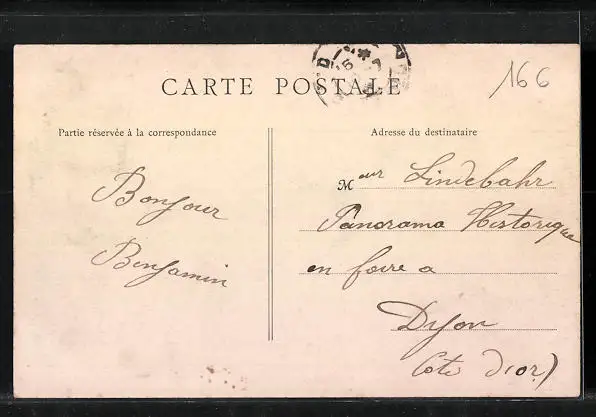 CARTE POSTALE
166
Partie réservée à la correspondance
Adresse du destinataire
Bonjour
Benjamin
Meur Lindebahr
Panorama Historique
en foire a
Dijon
Cote d'or)